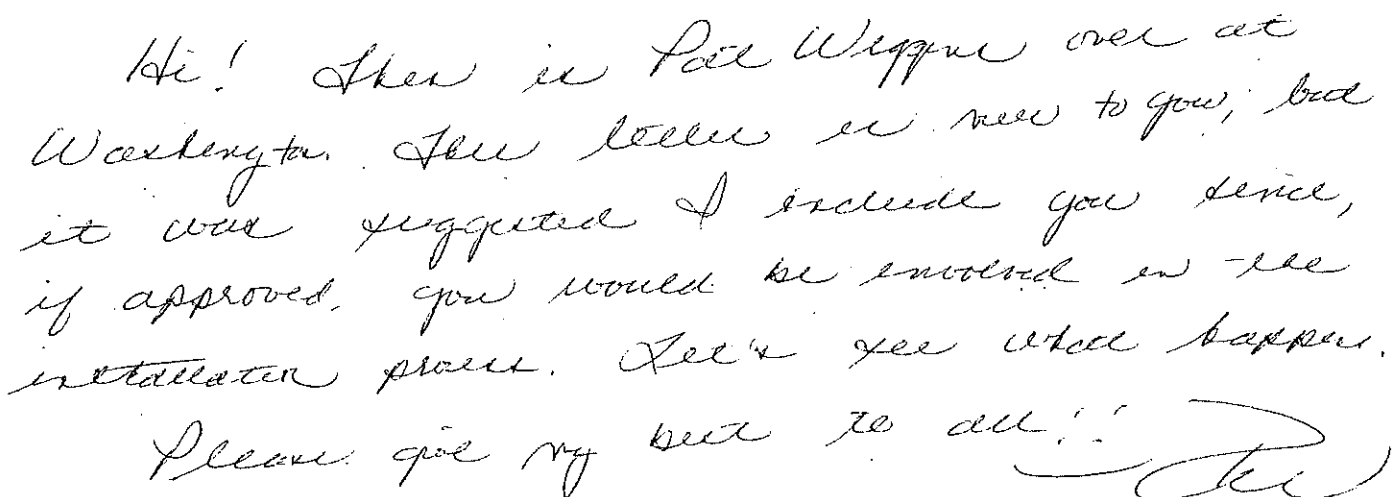 Hi! This is Pat Wiggins over at
Washington. This letter is new to you, but
it was suggested I include you since,
if approved, you would be involved in the
installation process. Let's see what happens.
Please give my best to all!!